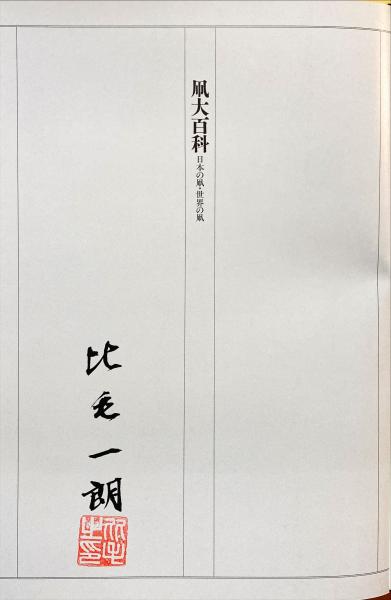 凧大百科
日本の凧・世界の凧
比毛一朗